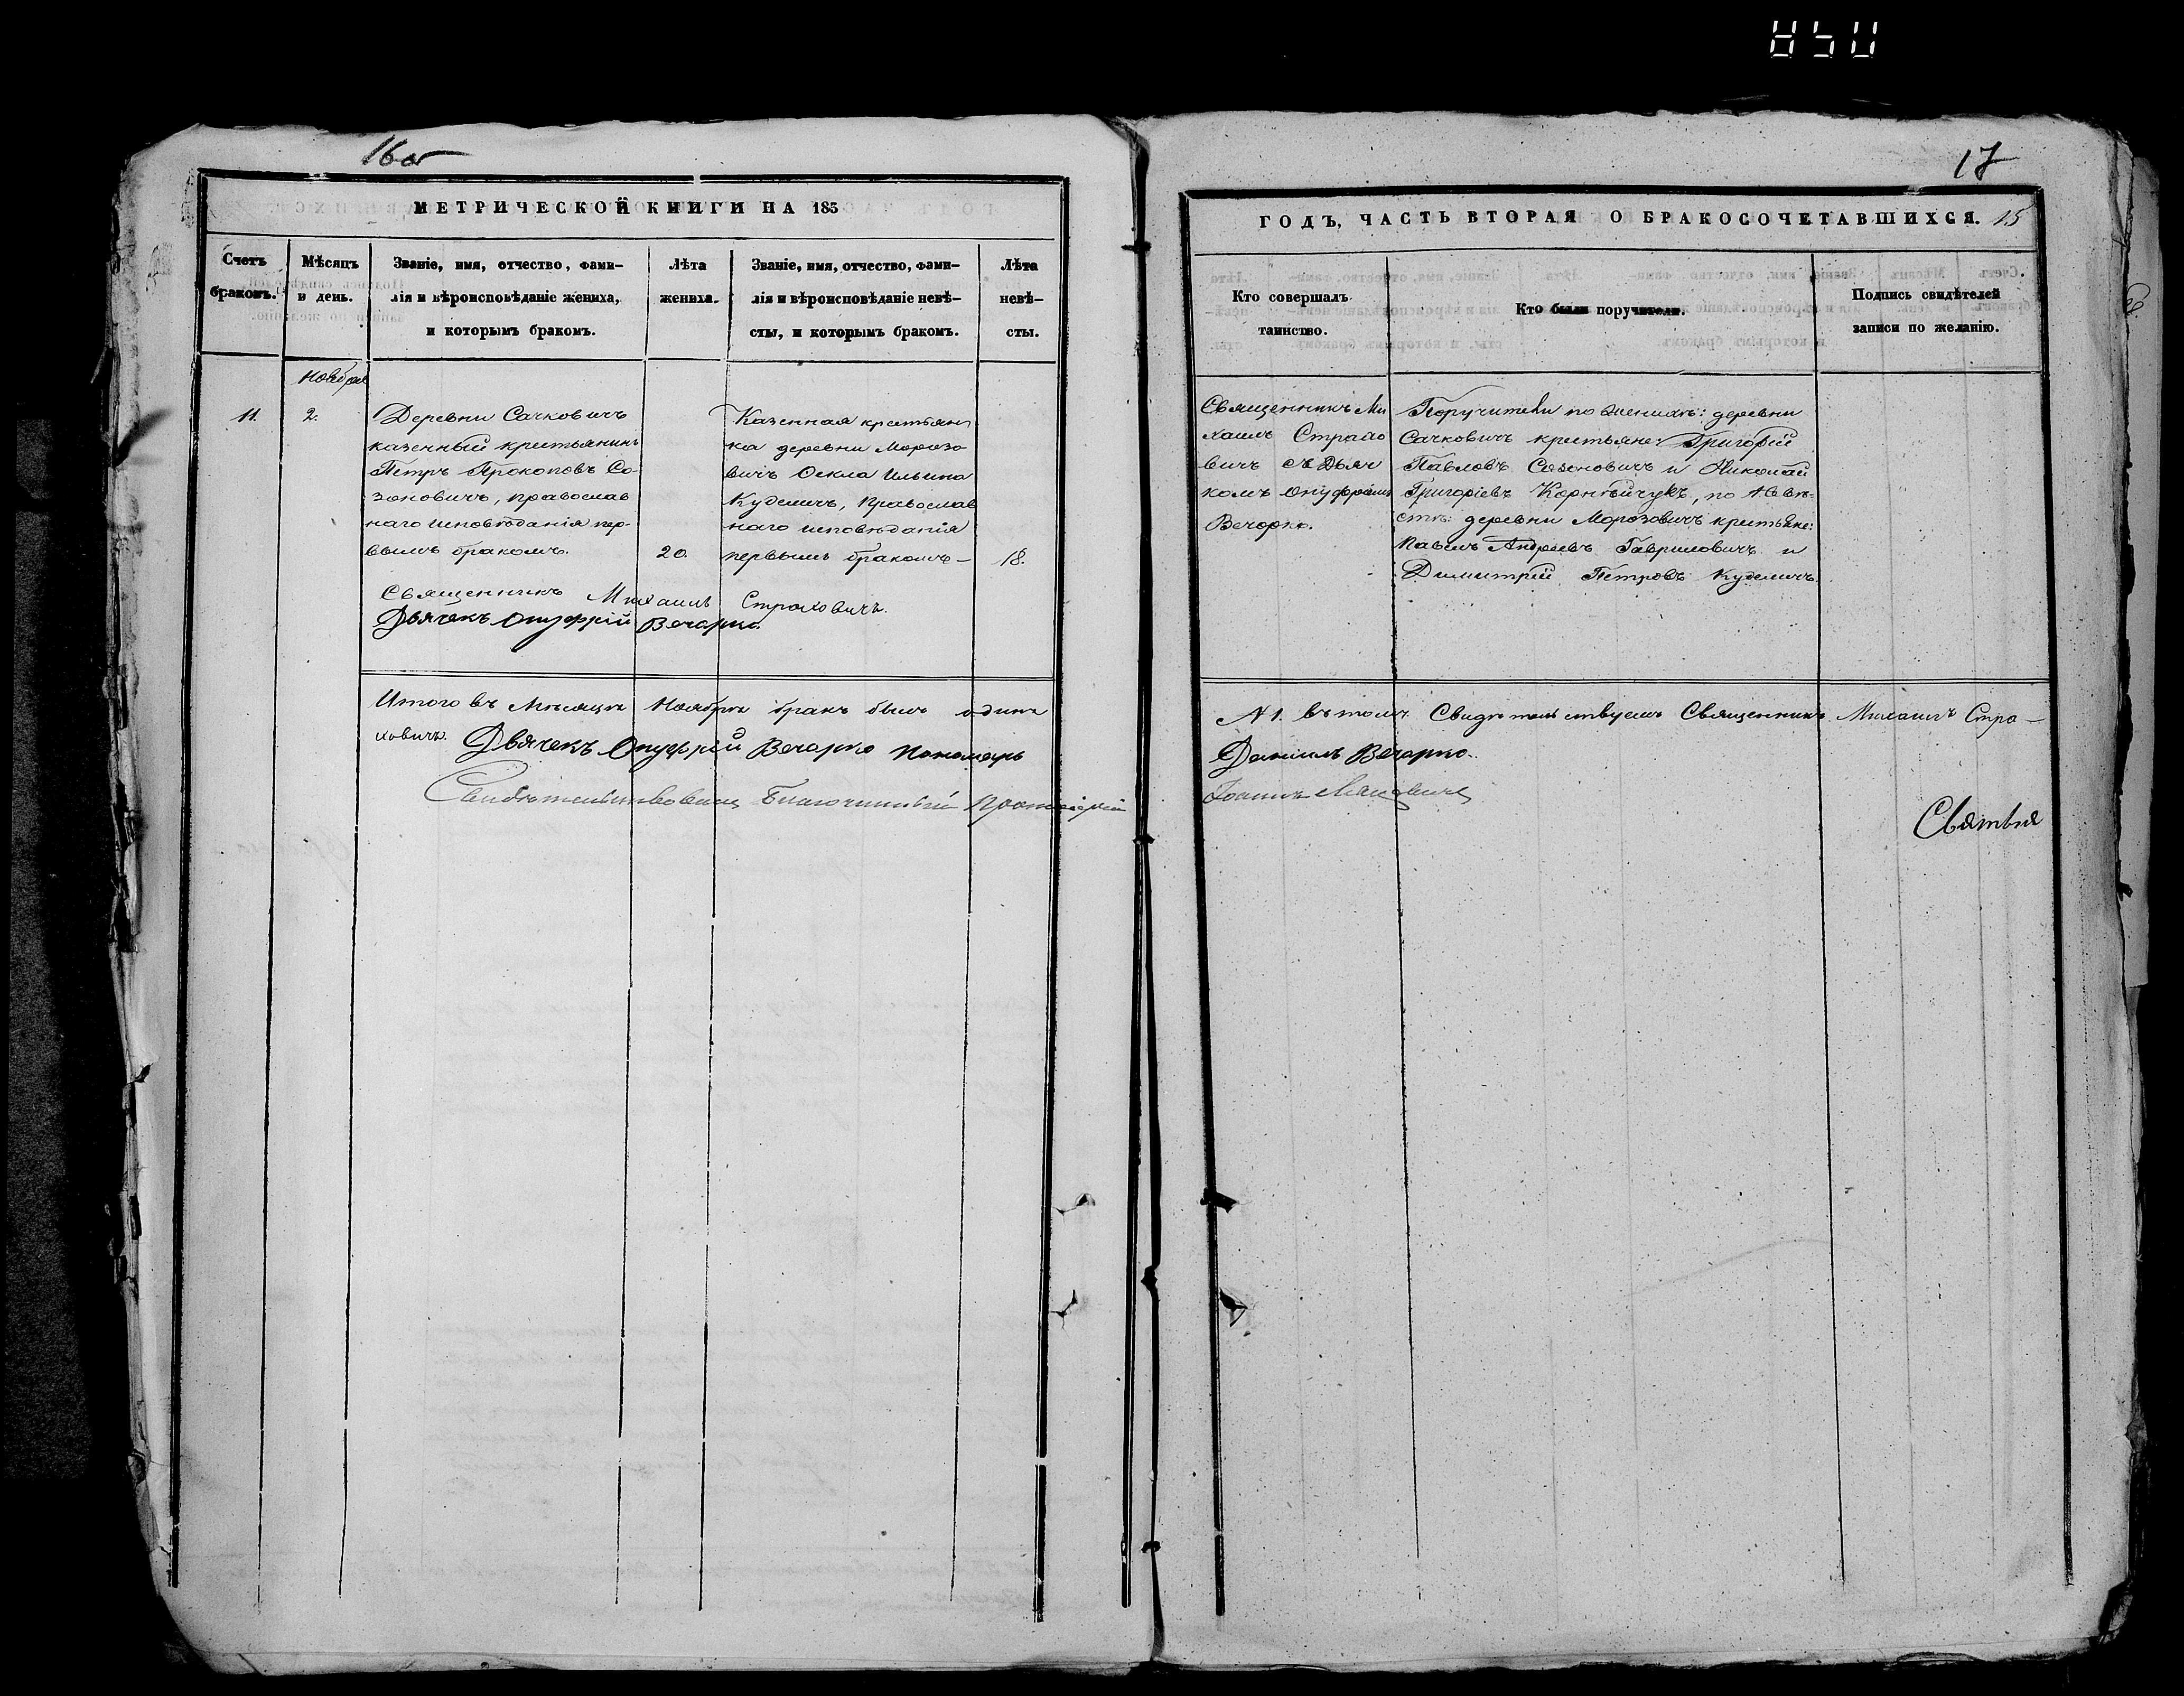 16 об
МЕТРИЧЕСКОЙ КНИГИ НА 185
Счетъ браковъ.
Мѣсяцъ и день.
Званіе, имя, отчество, фами-
лія и вѣроисповѣданіе жениха,
и которымъ бракомъ.
Лѣта жениха.
Званіе, имя, отчество, фами-
лія и вѣроисповѣданіе невѣ-
сты, и которымъ бракомъ.
Лѣта невѣ-
сты.
Ноября
11.
2.
Деревни Сачковичъ
казенный крестьянинъ
Петръ Прокоповъ Со-
зоновичъ, православ
наго исповѣданія пер-
вымъ бракомъ.
20.
Казенная крестьян
ка деревни Морозо
вичъ Ѳекла Ильина
Куделичъ, православ
наго исповѣданія
первымъ бракомъ-
18.
Священникъ Михаилъ Страховичъ.
Дьячекъ Онуфрій Вечорко.
Итого въ Мѣсяцѣ Ноябрѣ бракъ былъ одинъ
ховичъ. Дьячекъ Онуфрій Вечорко пономарь
Свидѣтельствовалъ Благочинный Протоіерей
17
ГОДЪ, ЧАСТЬ ВТОРАЯ О БРАКОСОЧЕТАВШИХСЯ. 15
Кто совершалъ
таинство.
Кто были поручители.
Подпись свидѣтелей
записи по желанію.
Священникъ Ми
хаилъ Страхо
вичъ съ Дьяч
комъ Онуфріемъ
Вечорко.
Поручители по женихѣ: деревни
Сачковичъ крестьяне: Григорій
Павловъ Созоновичъ и Николай
Григоріевъ Корнѣйчукъ, по невѣ-
стѣ: деревни Морозовичъ крестьяне:
Павелъ Андреевъ Гавриловичъ и
Димитрій Петровъ Куделичъ.
№1. въ томъ Свидѣтельствуемъ Священникъ Михаилъ Стра-
Даниилъ Вечорко.
Іоаннъ